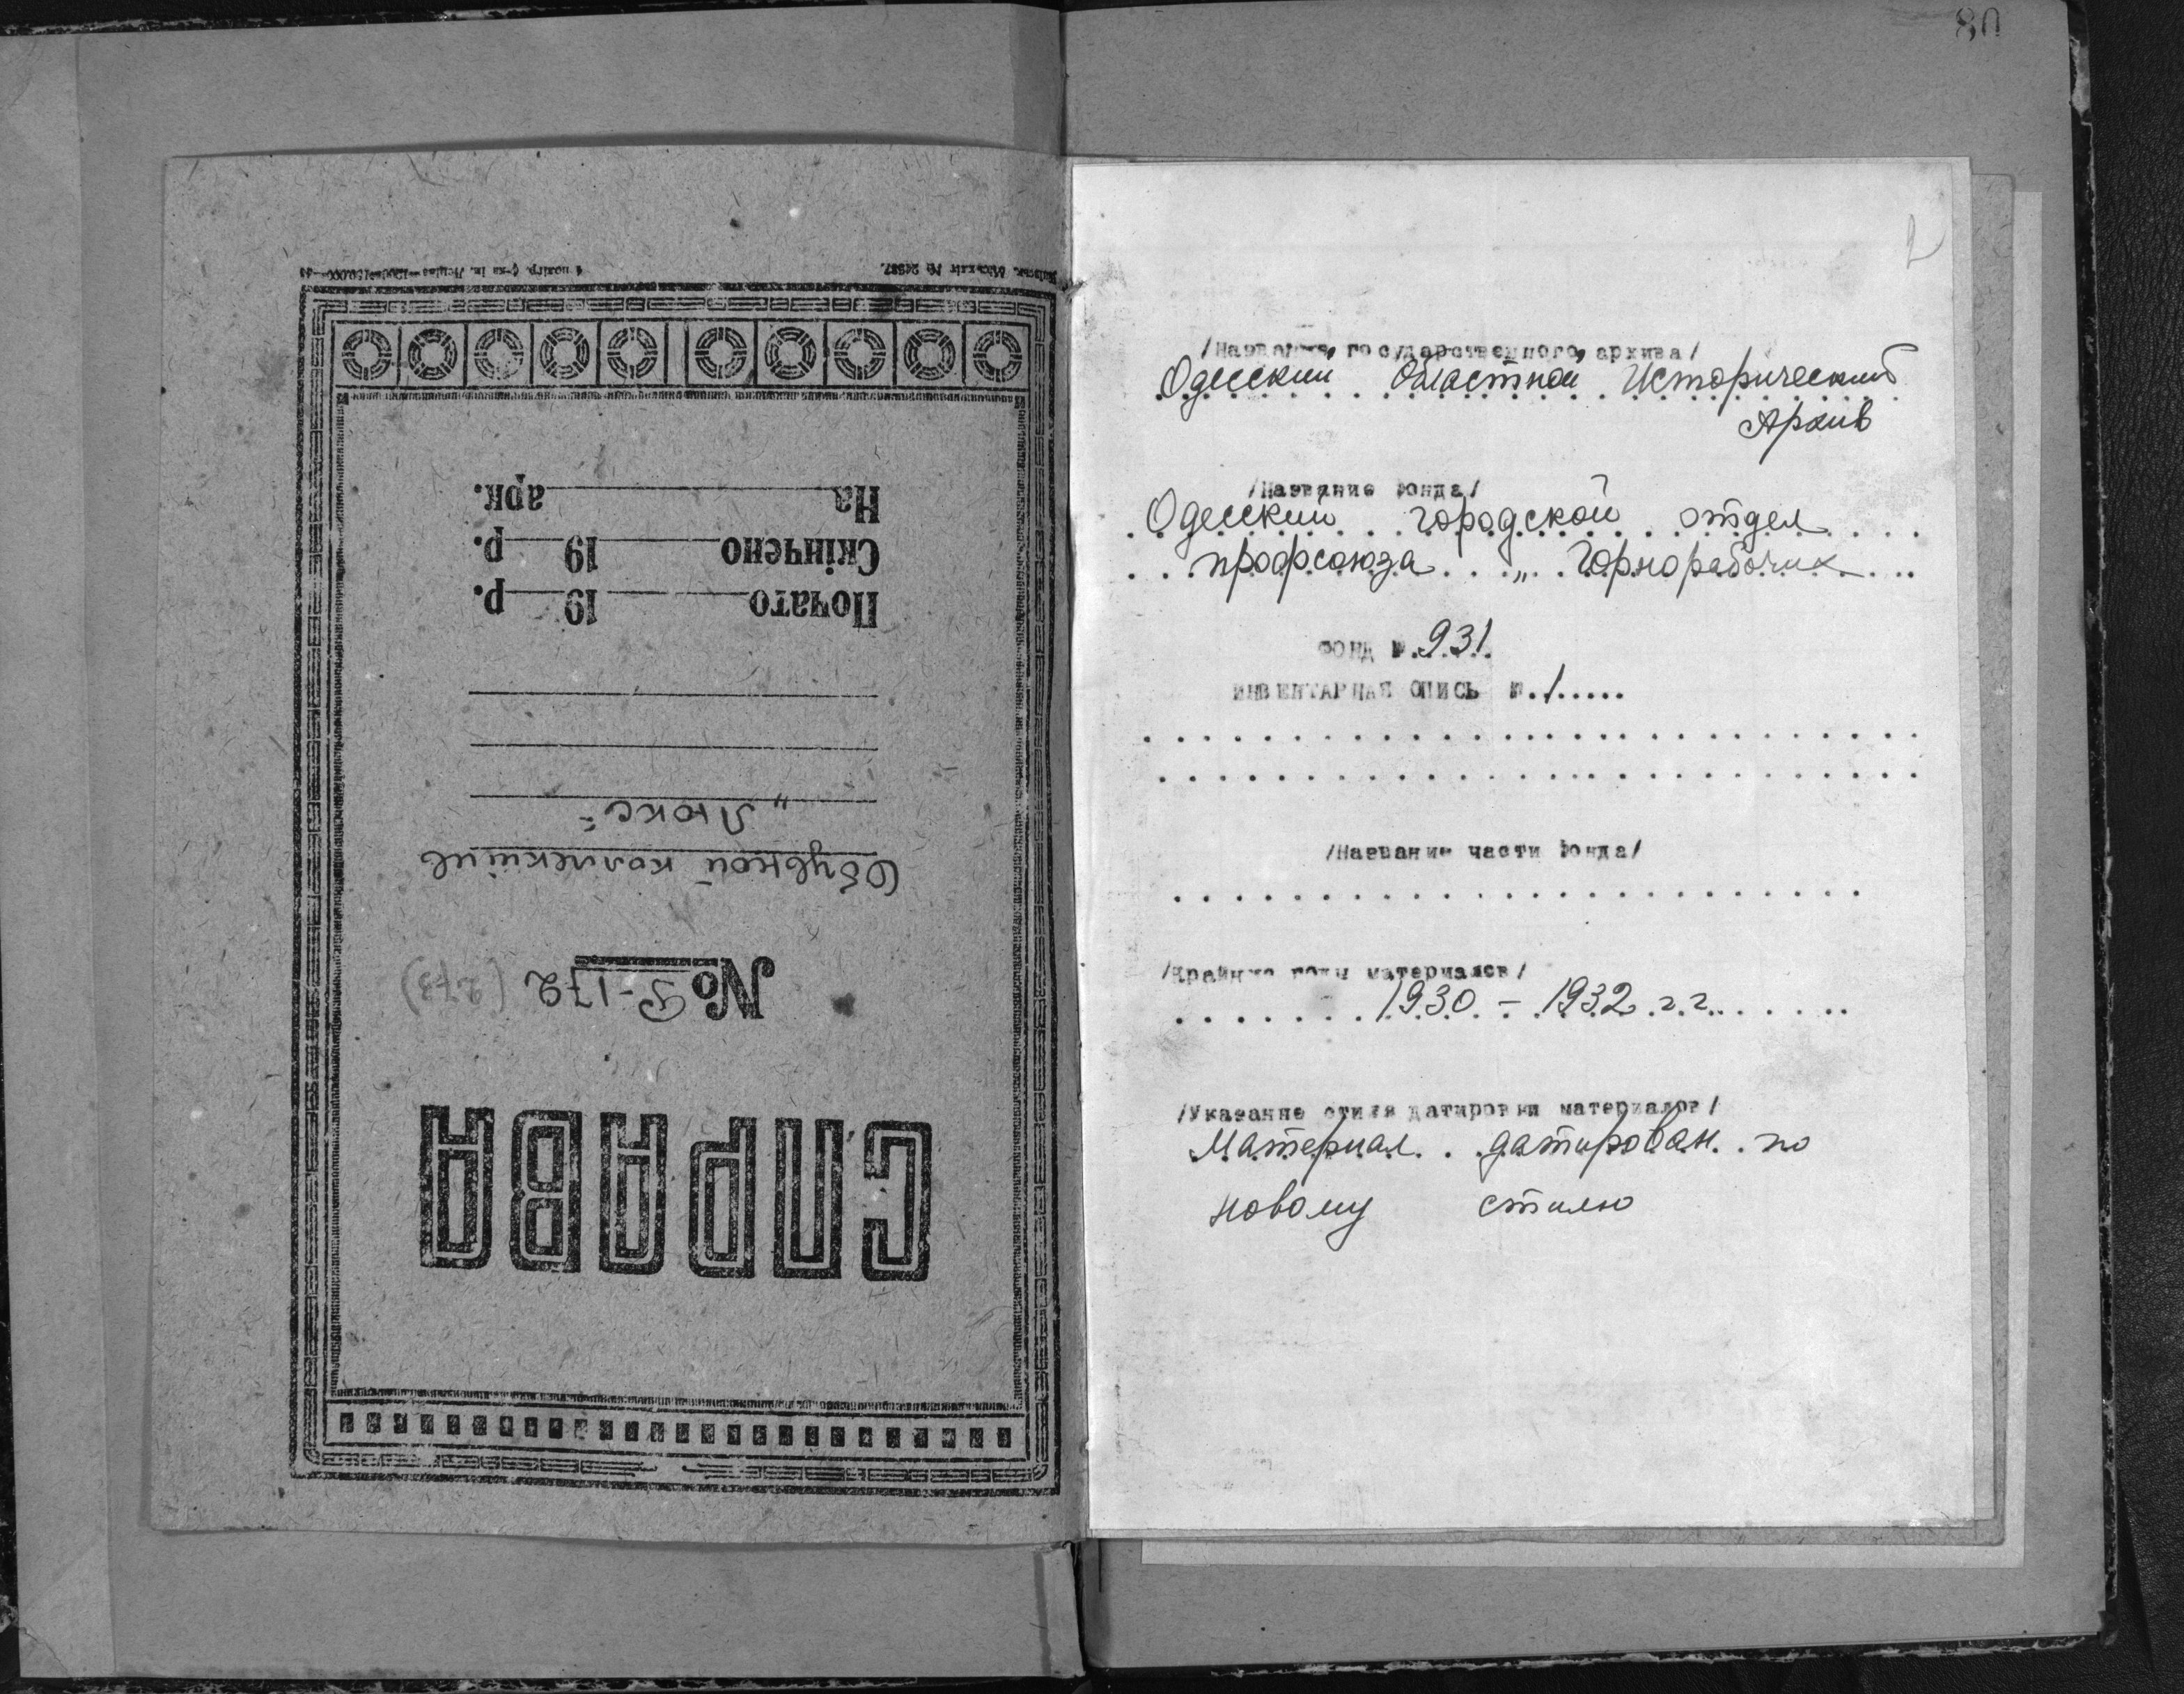 СПРАВА
№ Р-172 (273)
Обувной коллектив
„Люкс"
Почато 19 р.
Скінчено 19 р.
На арк.
80
/Название государственного архива/
Одесский Областной Исторический
Архив
/Название фонда/
Одесский городской отдел
профсоюза „Горнорабочих
ФОНД № 931.
ИНВЕНТАРНАЯ ОПИСЬ № 1.....
/Название части фонда/
/Крайние годы материалов/
1930 – 1932 г.г.
/Указание стиля датировки материалов/
Материал датирован по
новому стилю